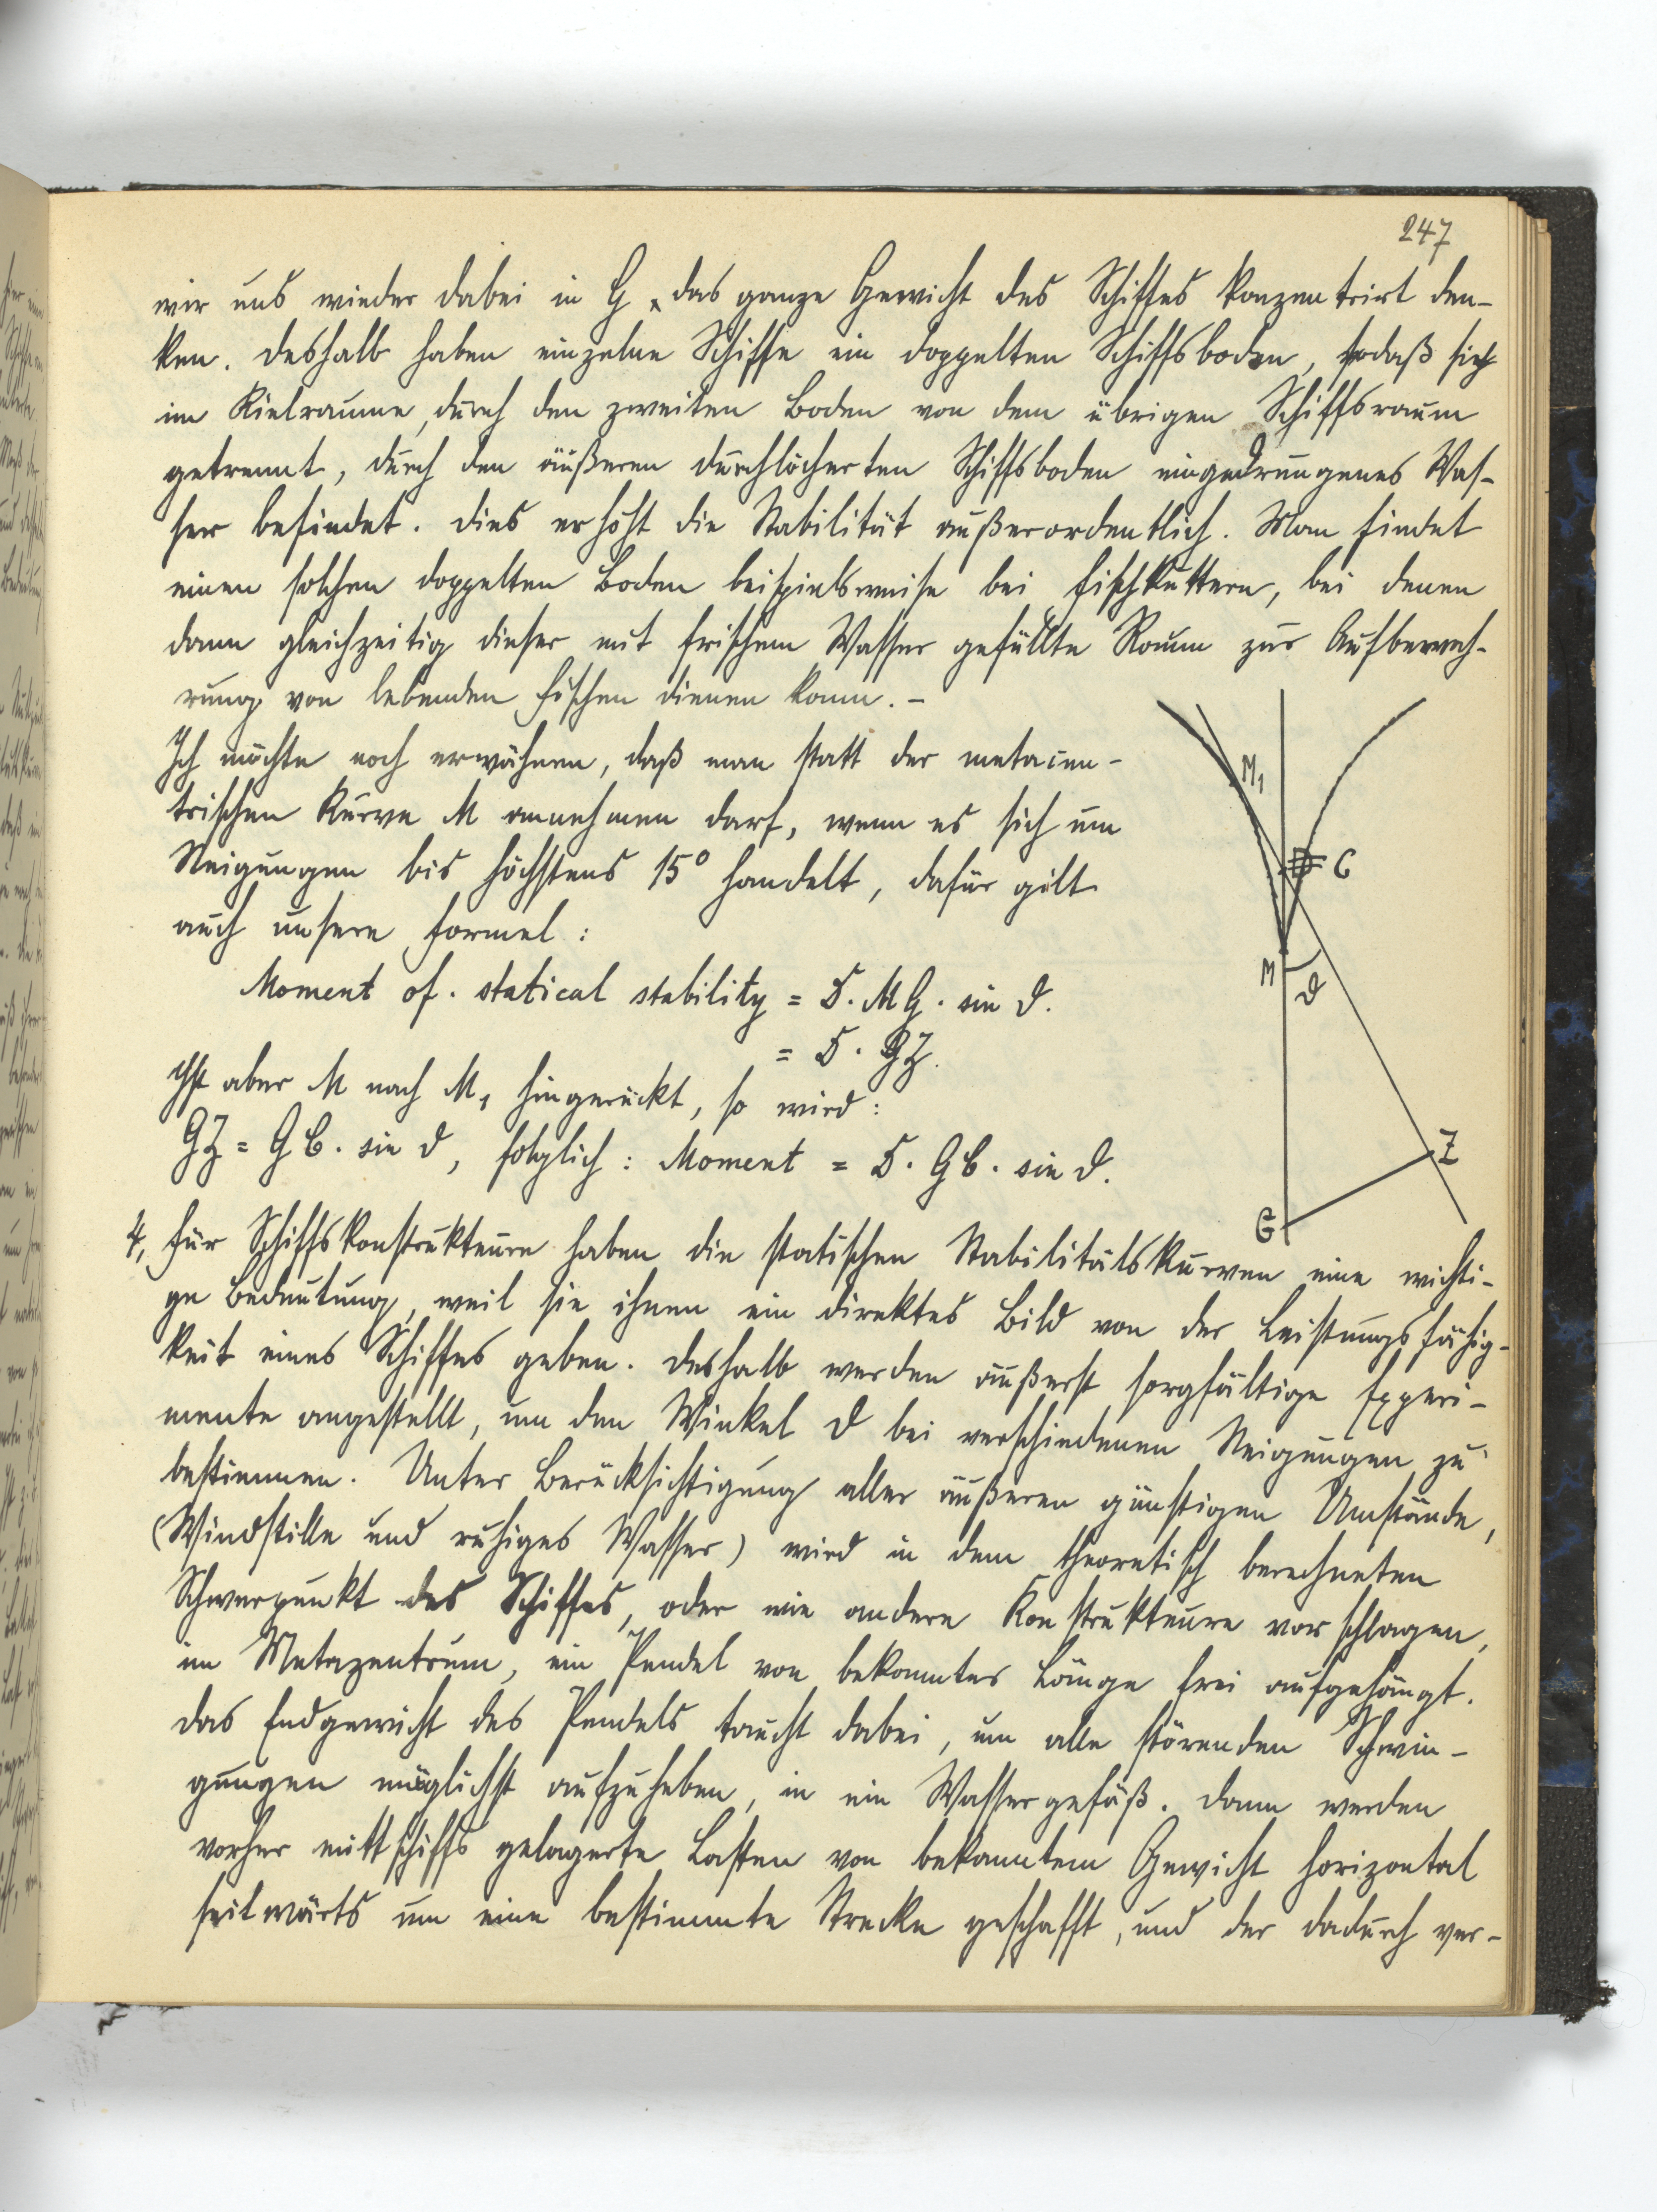 247
wir uns wieder dabei in G, das ganze Gewicht des Schiffes konzentrirt den-
ken. Deshalb haben einzelne Schiffe ein doppelten Schiffsboden, sodaß sich
im Kielraume, durch den zweiten Boden von dem übrigen Schiffsraum
getrennt, durch den äußeren durchlöcherten Schiffsboden eingedrungenes Was-
ser befindet. Dies erhöht die Stabilität außerordentlich. Man findet
einen solchen doppelten Boden beispielsweise bei Fischkuttern, bei denen
dann gleichzeitig dieser mit frischem Wasser gefüllte Raum zur Aufbewah-
rung von lebenden Fischen dienen kann. –
Ich möchte noch erwähnen, daß man statt der metacen-
trischen Kurve M annehmen darf, wenn es sich um
Neigungen bis höchstens 15° handelt, dafür gilt
auch unsere Formel:
Moment of. statical stability = D. MG. sin ϑ.
= D. GZ.
Ist aber M nach M1 hingerückt, so wird:
GZ = GC. sin ϑ, folglich: Moment = D. GC. sin ϑ.
M1
C
M
ϑ
Z
G
4, Für Schiffskonstrukteure haben die statischen Stabilitätskurven eine wichti-
ge Bedeutung, weil sie ihnen ein direktes Bild von der Leistungsfähig-
keit eines Schiffes geben. Deshalb werden äußerst sorgfältige Experi-
mente angestellt, um den Winkel ϑ bei verschiedenen Neigungen zu
bestimmen. Unter Berücksichtigung aller äußeren günstigen Umstände,
(Windstille und ruhiges Wasser) wird in dem theoretisch berechneten
Schwerpunkt des Schiffes, oder wie andere Konstrukteure vorschlagen,
im Metazentrum, ein Pendel von bekannter Länge frei aufgehängt.
Das Endgewicht des Pendels taucht dabei, um alle störenden Schwin-
gungen möglichst aufzuheben, in ein Wassergefäß. Dann werden
vorher mittschiffs gelagerte Lasten von bekanntem Gewicht horizontal
seitwärts um eine bestimmte Strecke geschafft, und der dadurch ver-